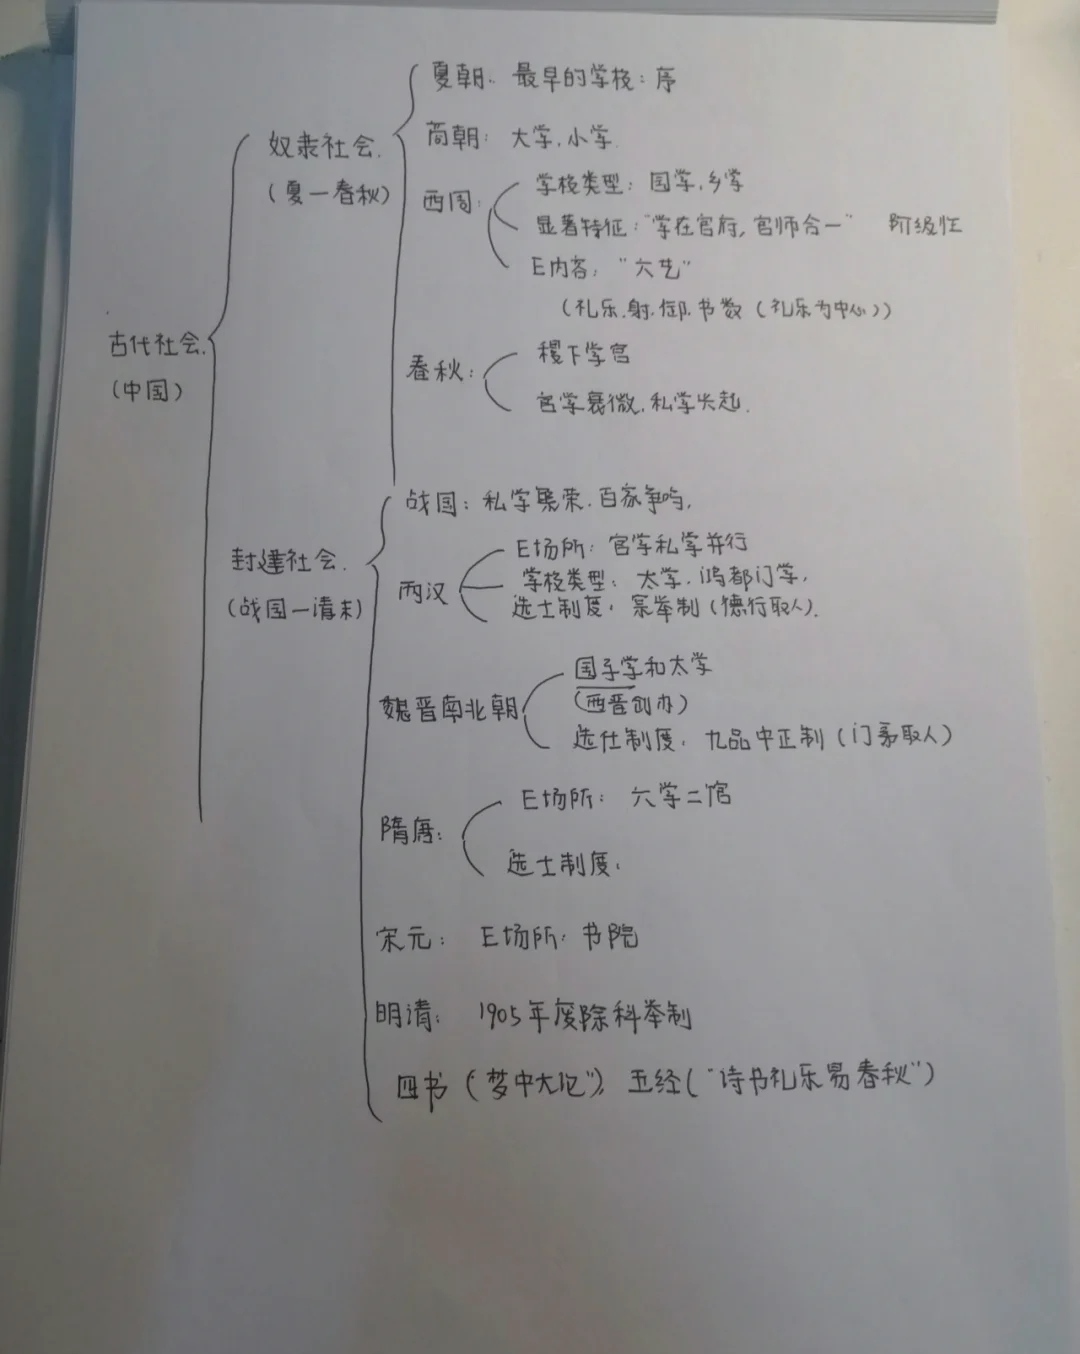 夏朝: 最早的学校: 序
奴隶社会.
(夏一春秋)
商朝: 大学.小学.
西周:
学校类型: 国学,乡学
显著特征: "学在官府, 官师合一" 阶级性
E内容: "六艺"
(礼乐.射.御.书数(礼乐为中心))
古代社会.
(中国)
春秋:
稷下学宫
官学衰微.私学兴起.
战国: 私学繁荣.百家争鸣.
封建社会.
(战国一清末)
两汉
E场所: 官学私学并行
学校类型: 太学.鸿都门学,
选士制度: 察举制(德行取人).
魏晋南北朝
国子学和太学
(西晋创办)
选仕制度: 九品中正制(门第取人)
隋唐:
E场所: 六学二馆
选士制度:
宋元: E场所: 书院
明清: 1905年废除科举制
四书("梦中大论"), 五经("诗书礼乐易春秋")